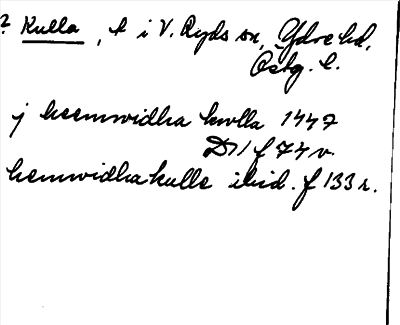 ? Kulla, t i V. Ryds sn, Ydre hd,
Östg. l.
j heemwidha kwlla 1447
D11 f 74 v.
hemwidhakulle ibid. f 133 r.